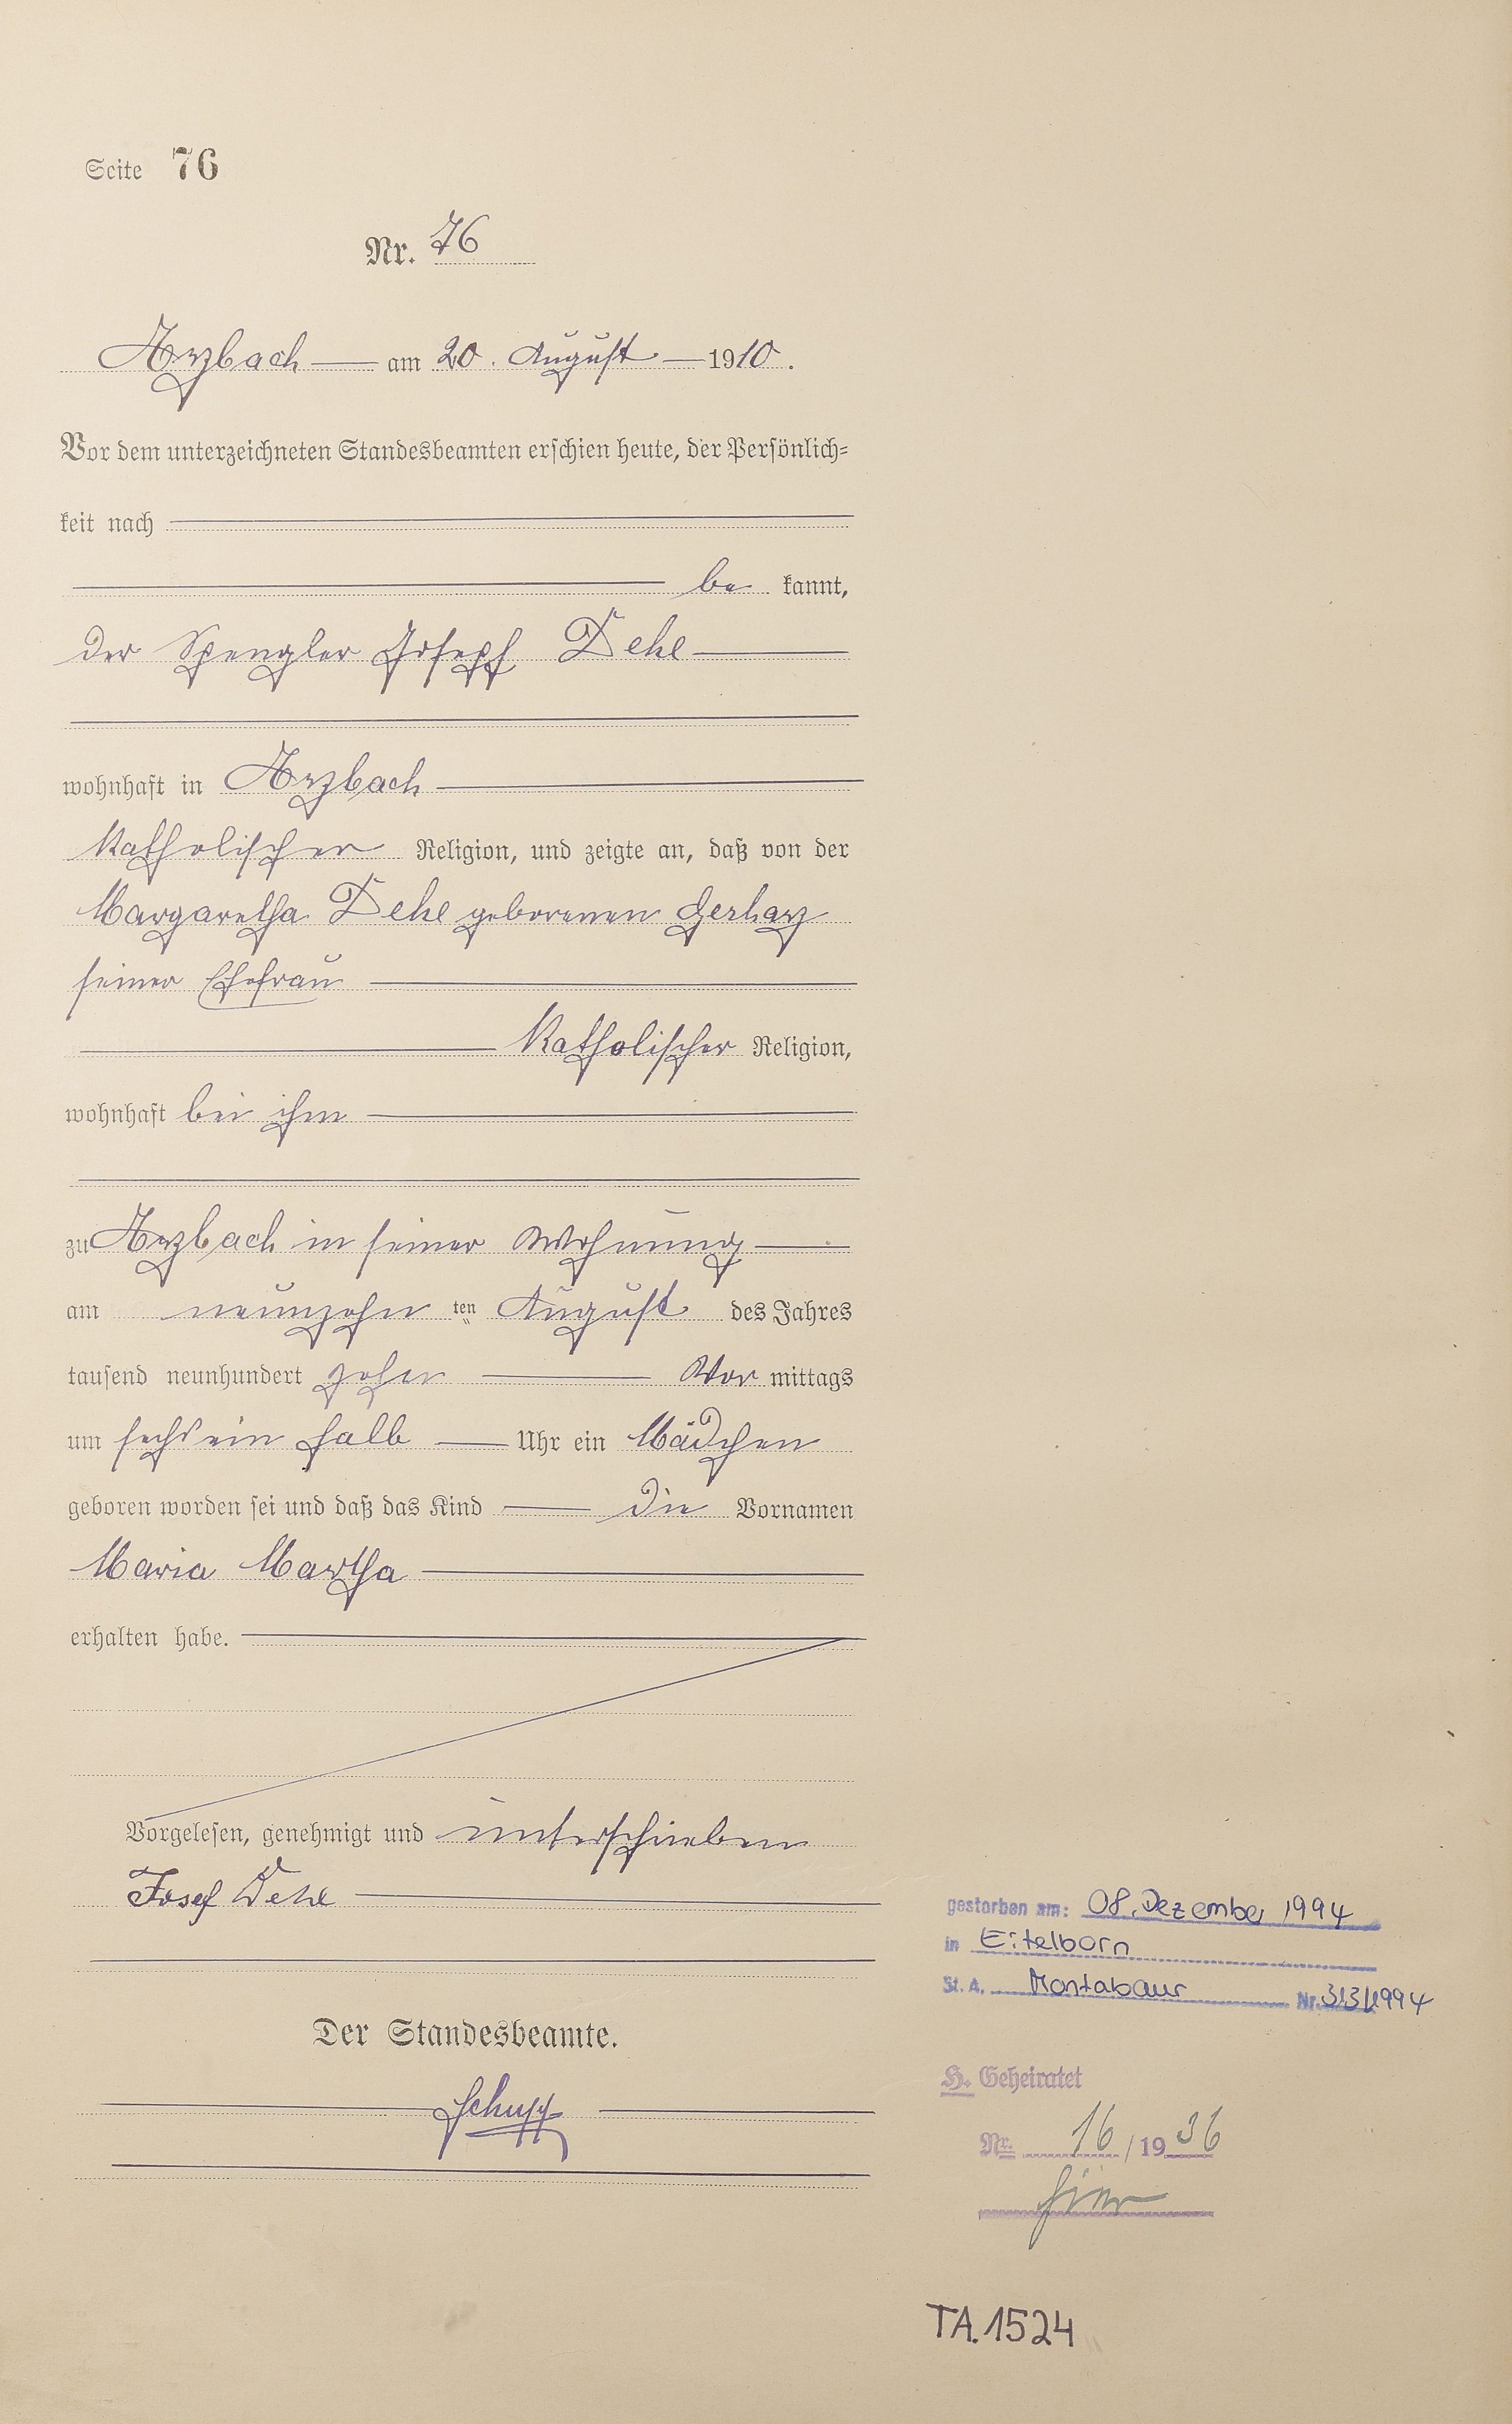 Seite 76
Nr. 76
Arzbach am 20. August 1910.
Vor dem unterzeichneten Standesbeamten erschien heute, der Persönlich=
keit nach
be kannt,
der Spengler Joseph Dehe
wohnhaft in Arzbach
katholischer Religion, und zeigte an, daß von der
Margaretha Dehe geborenen Gerharz
seiner Ehefrau
katholischer Religion,
wohnhaft bei ihm
zu Arzbach in seiner Wohnung
am neunzehn ten August des Jahres
tausend neunhundert zehn Vor mittags
um sechs ein halb Uhr ein Mädchen
geboren worden sei und daß das Kind die Vornamen
Maria Martha
erhalten habe.
Vorgelesen, genehmigt und unterschrieben
Josef Dehe
Der Standesbeamte.
Schupp
gestorben am: 08. Dezember 1994
in Eitelborn
St. A. Montabaur Nr. 313/1994
H. Geheiratet
Nr. 16 / 19 36
hier
TA. 1524